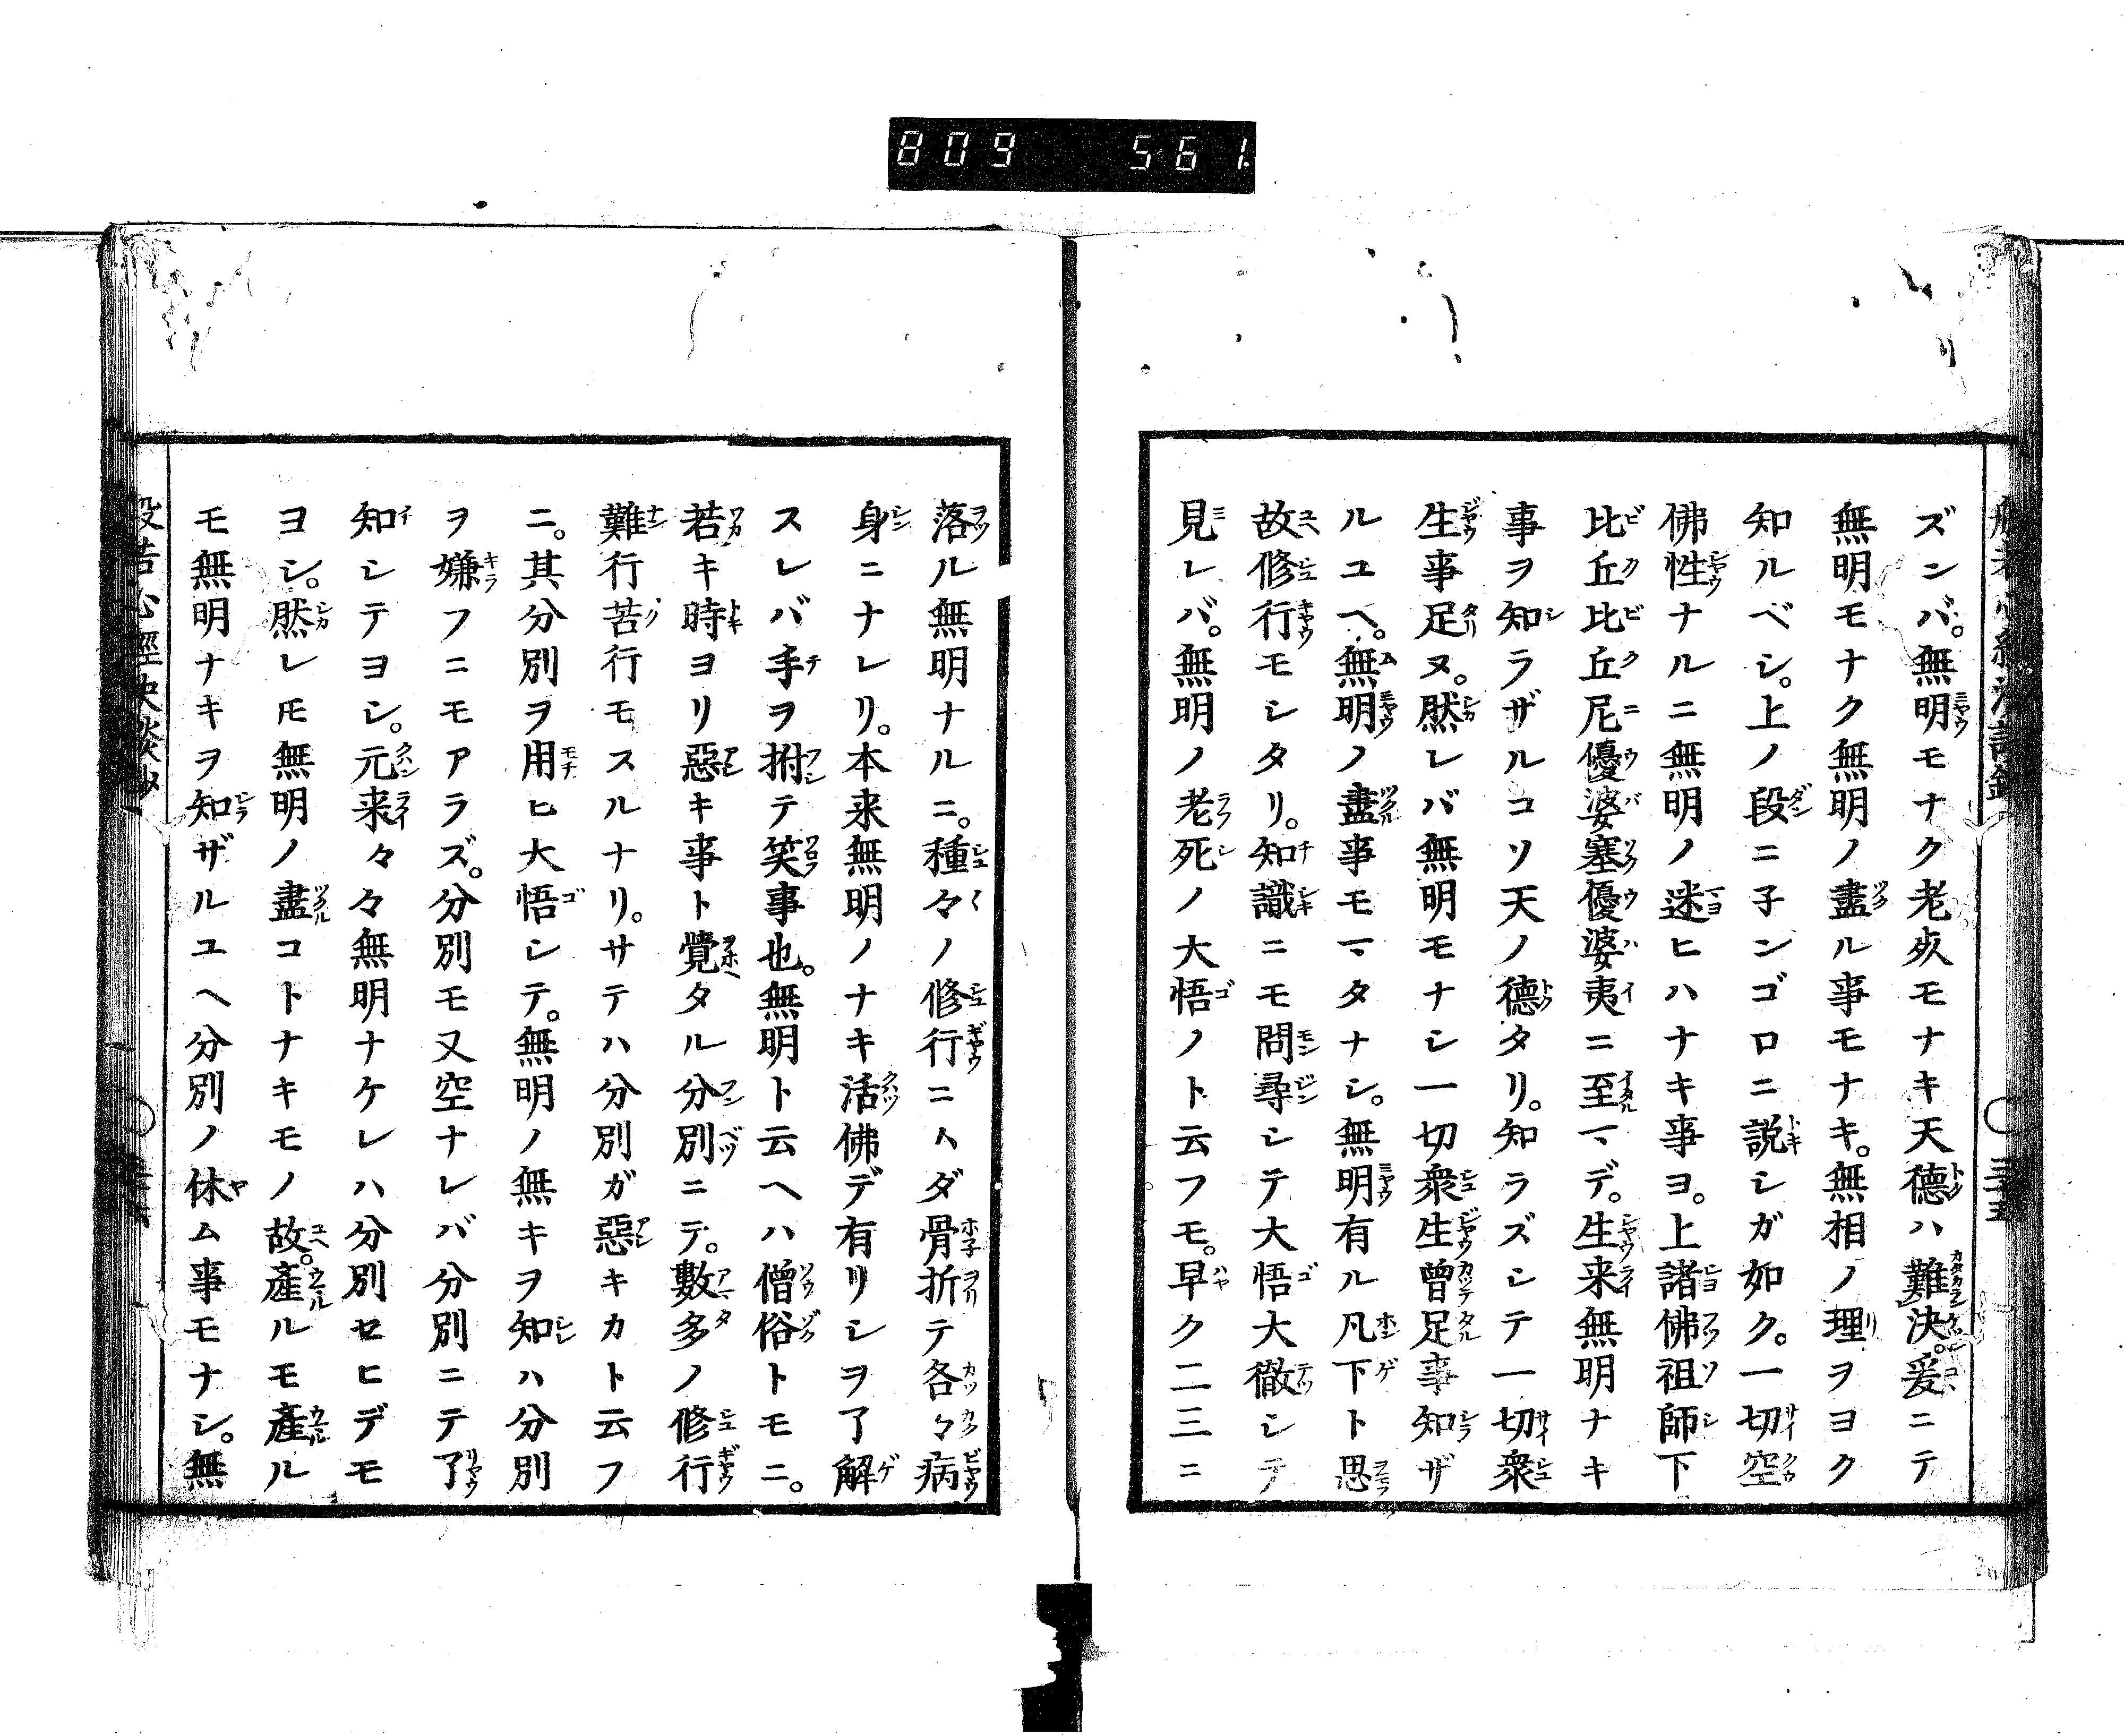 809 561.
ズンバ。無明モナク老死モナキ天德ハ難決。爰ニテ
無明モナク無明ノ盡ル事モナキ。無相ノ理ヲヨク
知ルベシ。上ノ段ニ子ンゴロニ説シガ如ク。一切空
佛性ナルニ無明ノ迷ヒハナキ事ヨ。上諸佛祖師下
比丘比丘尼優婆塞優婆夷ニ至マデ。生来無明ナキ
事ヲ知ラザルコソ天ノ德タリ。知ラズシテ一切衆
生事足ヌ。然レバ無明モナシ一切衆生曾足事知ザ
ルユヘ。無明ノ盡事モマタナシ。無明有ル凡下ト思
故修行モシタリ。知識ニモ問尋シテ大悟大徹シテ
見レバ。無明ノ老死ノ大悟ノト云フモ。早ク二三ニ
落ル無明ナルニ。種々ノ修行ニヘダ骨折テ各々病
身ニナレリ。本来無明ノナキ活佛デ有リシヲ了解
スレバ手ヲ拊テ笑事也。無明ト云ヘハ僧俗トモニ。
若キ時ヨリ惡キ事ト覺タル分別ニテ。數多ノ修行
難行苦行モスルナリ。サテハ分別ガ惡キカト云フ
ニ。其分別ヲ用ヒ大悟シテ。無明ノ無キヲ知ハ分別
ヲ嫌フニモアラズ。分別モ又空ナレバ分別ニテ了
知シテヨシ。元来々々無明ナケレハ分別セヒデモ
ヨシ。然レ𪜈無明ノ盡コトナキモノ故。產ルモ產ル
モ無明ナキヲ知ザルユヘ分別ノ休ム事モナシ。無
般若心經決談鈔